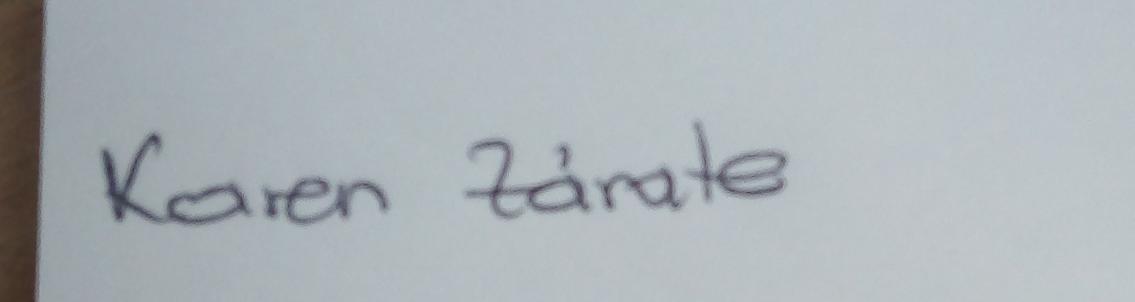 Karen Zárate